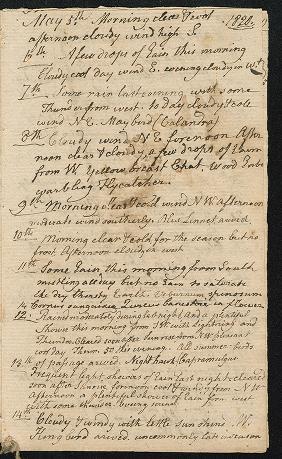 May 5th Morning clear & cool 1820.
afternoon cloudy wind high S
6th A few drops of Rain this morning
Cloudy cool day wind E. evening cloudy in
7th Some rain last evening with some
Thunder from west to day cloudy & cole
wind N E. May bird (Calandra)
8th Cloudy wind N E forenoon After
noon clear & cloudy a few drops of Rain
from W. Yellow breast Chat, Wood Pewe
warbling Flycatcher.
9th Morning clear & cool wind N W afternoon
moderate wind southerly. Blue Linnet arived
10th Morning clear & cold for the season but no
frost Afternoon cloudy wind west
11th Some Rain this morning from South
mist in all day but no Rain to saturate
the dry thirsty Earth
14 Cornus sanguinea in flower
12. Rained moderately during last night And a plentiful
Shower this morning from S W with Lightning and
Thunder. Cleared soon after sunrise from N W pleasant
cor day Therm. this evening. All summer birds
of passage arived. Night hawk Caprimulgus
13th Frequent light showers of Rain last night cleared
soon after Sunrise forenoon cool & windy from N W
Afternoon a plentiful shower of Rain from west
with some thunder being cool
14th Cloudy & windy with little sun shine. W.
King bird arived, uncommonly late in season